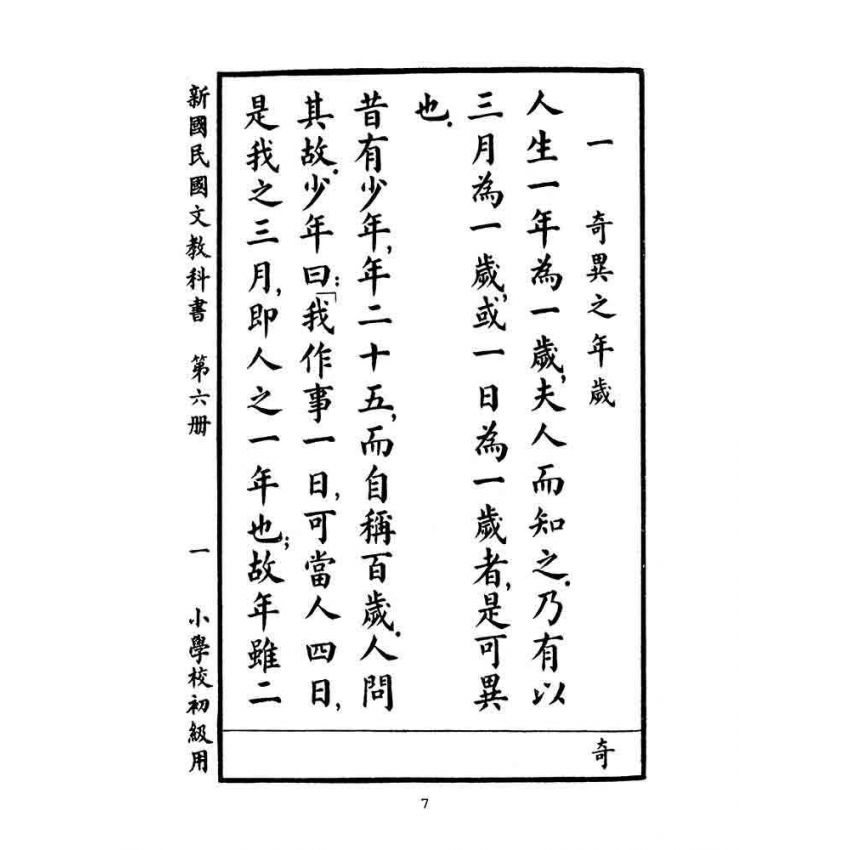 一 奇異之年歲
人生一年為一歲,夫人而知之.乃有以
三月為一歲,或一日為一歲者,是可異
也.
昔有少年,年二十五,而自稱百歲.人問
其故.少年曰:「我作事一日,可當人四日,
是我之三月,即人之一年也;故年雖二
奇
新國民國文教科書 第六册 一 小學校初級用
7